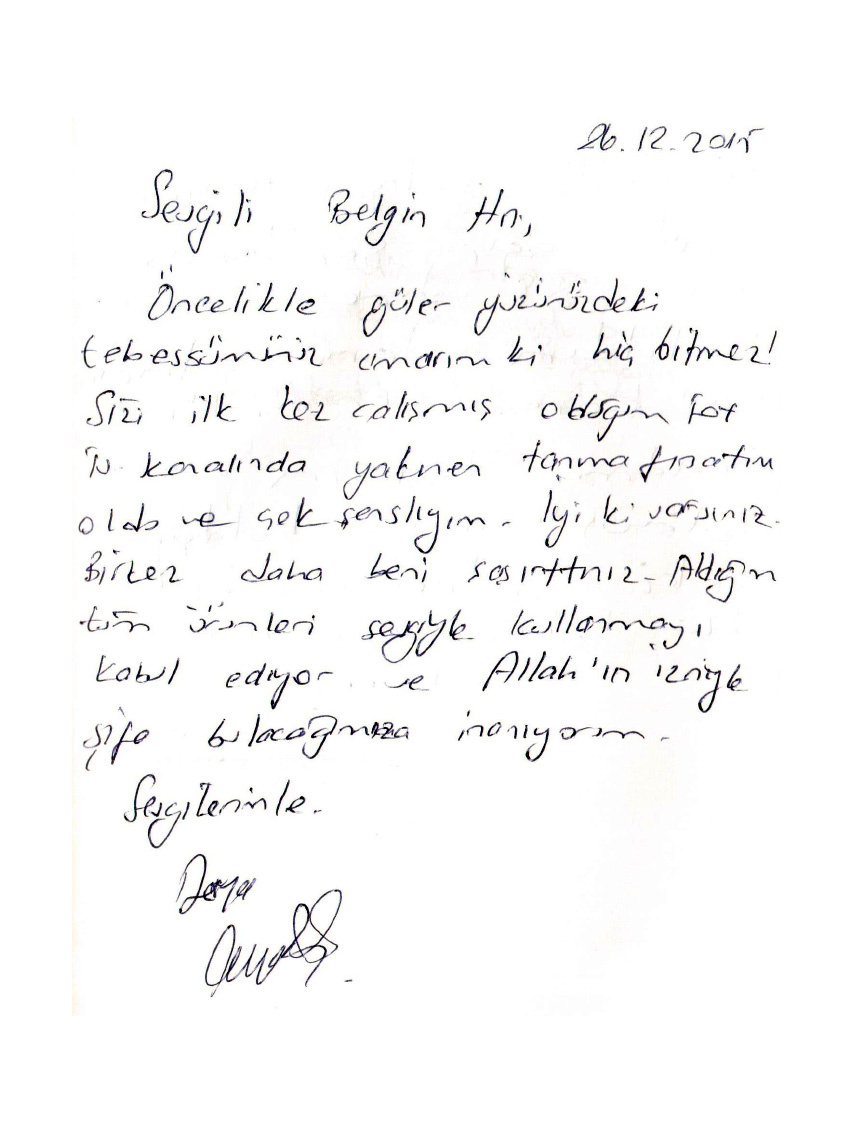 26.12.2015
Sevgili Belgin Hn,
Öncelikle güler yüzünüzdeki
tebessümünüz umarım ki hiç bitmez!
Sizi ilk kez çalışmış olduğum Fox
Tv kanalında yakınen tanıma fırsatım
oldu ve çok şanslıyım. İyi ki varsınız.
Birkez daha beni şaşırttınız. Aldığım
tüm ürünleri sevgiyle kullanmayı
kabul ediyor ve Allah'ın izniyle
şifa bulacağımıza inanıyorum.
Sevgilerimle.
Derya